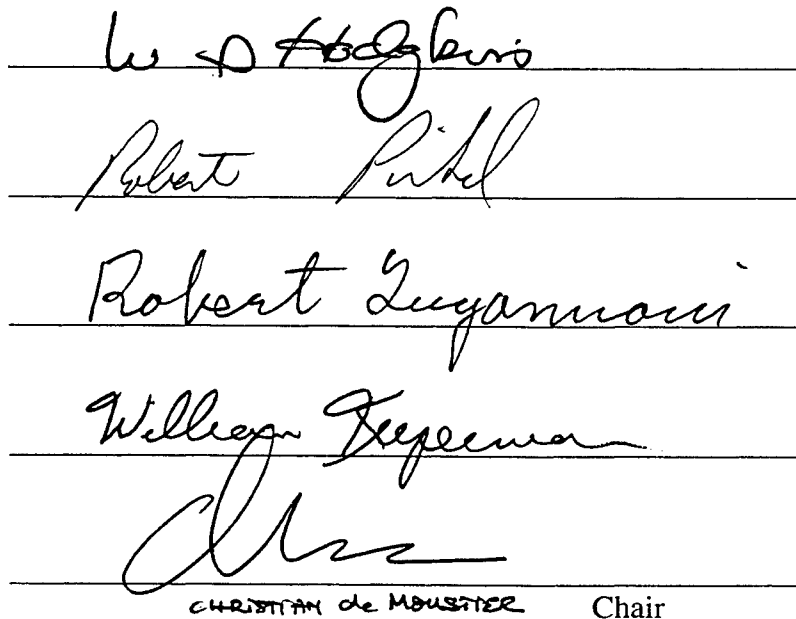 W S Hodgkiss
Robert Pinkel
Robert Guyannoni
William Kuperman
CHRISTIAN de MOUSTIER Chair